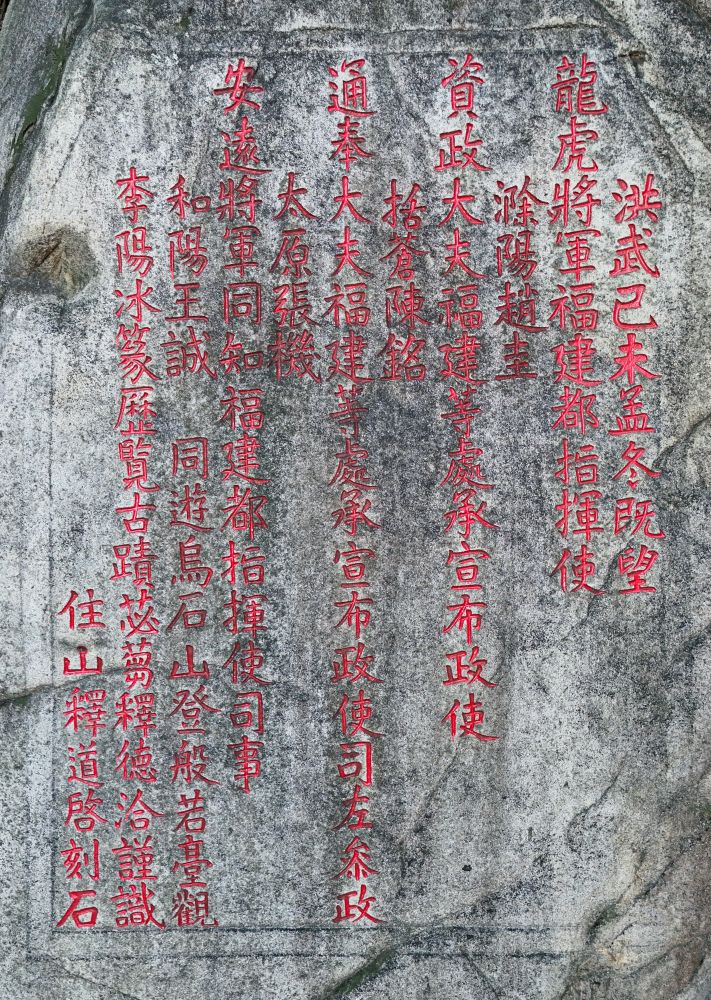 洪武已未孟冬既望
龍虎將軍福建都指揮使
滁陽趙圭
資政大夫福建等處承宣布政使
括蒼陳銘
通奉大夫福建等處承宣布政使司左叅政
太原張機
安遠將軍同知福建都指揮使司事
和陽王誠 同遊烏石山登般若臺觀
李陽冰篆歷覽古蹟苾蒭釋德洽謹識
住山釋道啓刻石